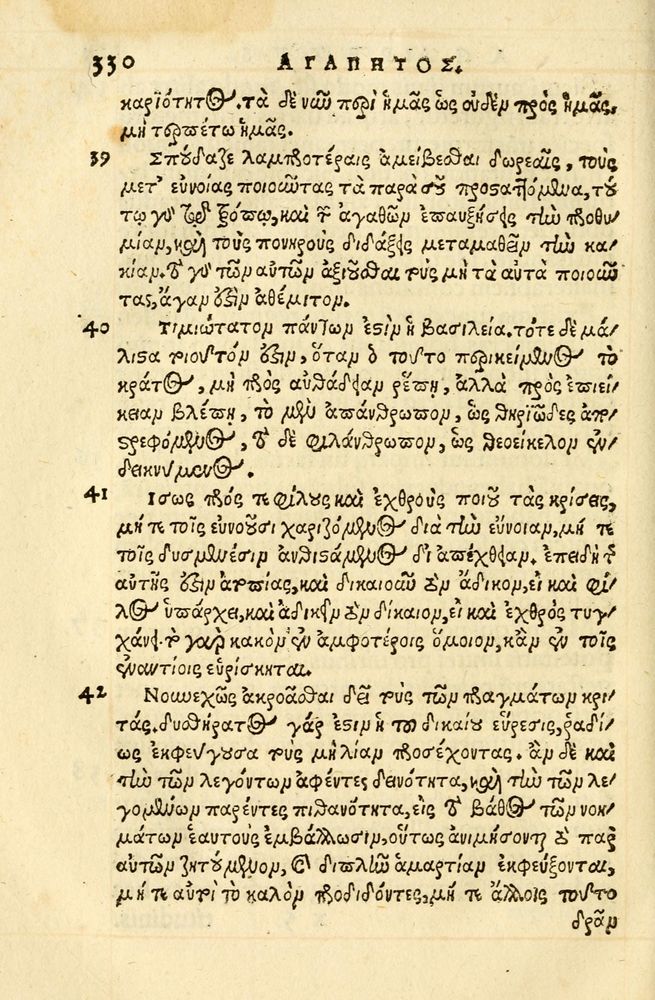 330 ΑΓΑΠΗΤΟΣ.
καριότητος. τὰ δὲ νῦν περὶ ἡμᾶς ὡς οὐδὲν πρὸς ἡμᾶς,
μὴ τρεπέτω ἡμᾶς.
39 Σπούδαζε λαμπροτέραις ἀμείβεσθαι δωρεαῖς, τοὺς
μετ᾽ εὐνοίας ποιοῦντας τὰ παρὰ σοῦ προσαττόμενα, τού/
τῳ γὰρ τῷ τρόπῳ, καὶ τῶν ἀγαθῶν ἐπαυξήσεις τὴν προθυ/
μίαν, καὶ τοὺς πονηροὺς διδάξεις μεταμαθεῖν τὴν κα/
κίαν. τὸ γὰρ τῶν αὐτῶν ἀξιοῦσθαι τοὺς μὴ τὰ αὐτὰ ποιοῦν
τας, ἄγαν ἐστὶν ἀθέμιτον.
40 Τιμιώτατον πάντων ἐστὶν ἡ βασιλεία. τότε δὲ μά/
λιστα τοιοῦτόν ἐστιν, ὅταν ὁ τοῦτο περικείμενος τὸ
κράτος, μὴ πρὸς αὐθάδειαν ῥέπῃ, ἀλλὰ πρὸς ἐπιεί/
κειαν βλέπῃ, τὸ μὲν ἀπάνθρωπον, ὡς θηριῶδες ἀπο/
στρεφόμενος, τὸ δὲ φιλάνθρωπον, ὡς θεοείκελον ἐν/
δεικνύμενος.
41 Ισως πρός τε φίλους καὶ ἐχθροὺς ποιοῦ τὰς κρίσεις,
μήτε τοῖς εὐνοοῦσι χαριζόμενος διὰ τὴν εὔνοιαν, μήτε
τοῖς δυσμενέσιν ἀνθιστάμενος δι᾽ ἀπέχθειαν. ἐπειδὴ τῆς
αὐτῆς ἐστιν ἀτοπίας, καὶ δικαιοῦν τὸν ἄδικον, εἰ καὶ φί/
λος ὑπάρχει, καὶ ἀδικεῖν τὸν δίκαιον, εἰ καὶ ἐχθρὸς τυγ/
χάνει. τὸ γὰρ κακὸν ἐν ἀμφοτέροις ὅμοιον, κἂν ἐν τοῖς
ἐναντίοις εὑρίσκηται.
42 Νουνεχῶς ἀκροᾶσθαι δεῖ τοὺς τῶν πραγμάτων κρι/
τάς. δυσθήρατος γάρ ἐστιν ἡ τοῦ δικαίου εὕρεσις, ῥαδί/
ως ἐκφεύγουσα τοὺς μὴ λίαν προσέχοντας. ἂν δὲ καὶ
τὴν τῶν λεγόντων ἀφέντες δεινότητα, καὶ τὴν τῶν λε/
γομένων παρέντες πιθανότητα, εἰς τὸ βάθος τῶν νοη/
μάτων ἑαυτοὺς ἐμβάλλωσιν, οὕτως ἀνιμήσονται τὸ παρ᾽
αὐτῶν ζητούμενον, καὶ διπλῆν ἁμαρτίαν ἐκφεύξονται,
μήτε αὐτοὶ τὸ καλὸν προδιδόντες, μήτε ἄλλοις τοῦτο
δρᾶν